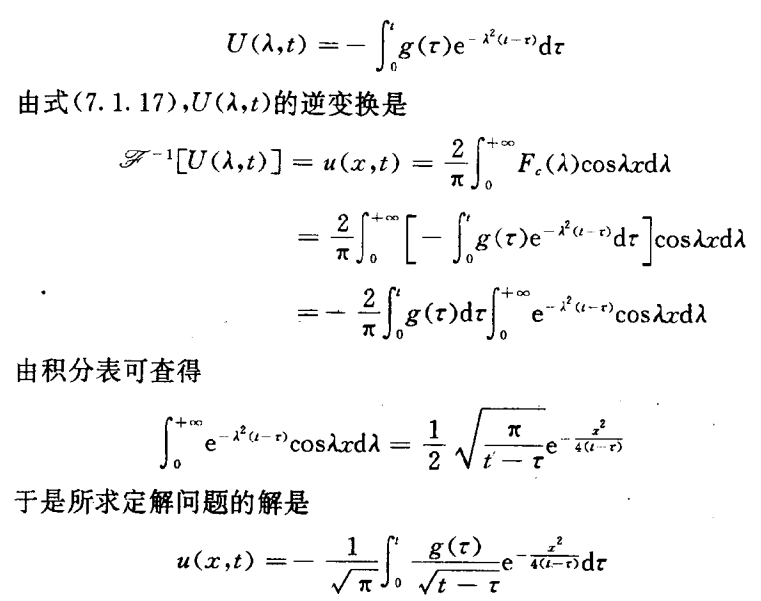 U(λ,t) = −∫₀ᵗ g(τ)e^{−λ²(t−τ)}dτ
由式(7.1.17),U(λ,t)的逆变换是
ℱ⁻¹[U(λ,t)] = u(x,t) = \frac{2}{π}∫₀^{+∞} F_c(λ)cosλxdλ
= \frac{2}{π}∫₀^{+∞} [−∫₀ᵗ g(τ)e^{−λ²(t−τ)}dτ]cosλxdλ
= −\frac{2}{π}∫₀ᵗ g(τ)dτ∫₀^{+∞} e^{−λ²(t−τ)}cosλxdλ
由积分表可查得
∫₀^{+∞} e^{−λ²(t−τ)}cosλxdλ = \frac{1}{2}\sqrt{\frac{π}{t−τ}}e^{−\frac{x²}{4(t−τ)}}
于是所求定解问题的解是
u(x,t) = −\frac{1}{\sqrt{π}}∫₀ᵗ \frac{g(τ)}{\sqrt{t−τ}}e^{−\frac{x²}{4(t−τ)}}dτ